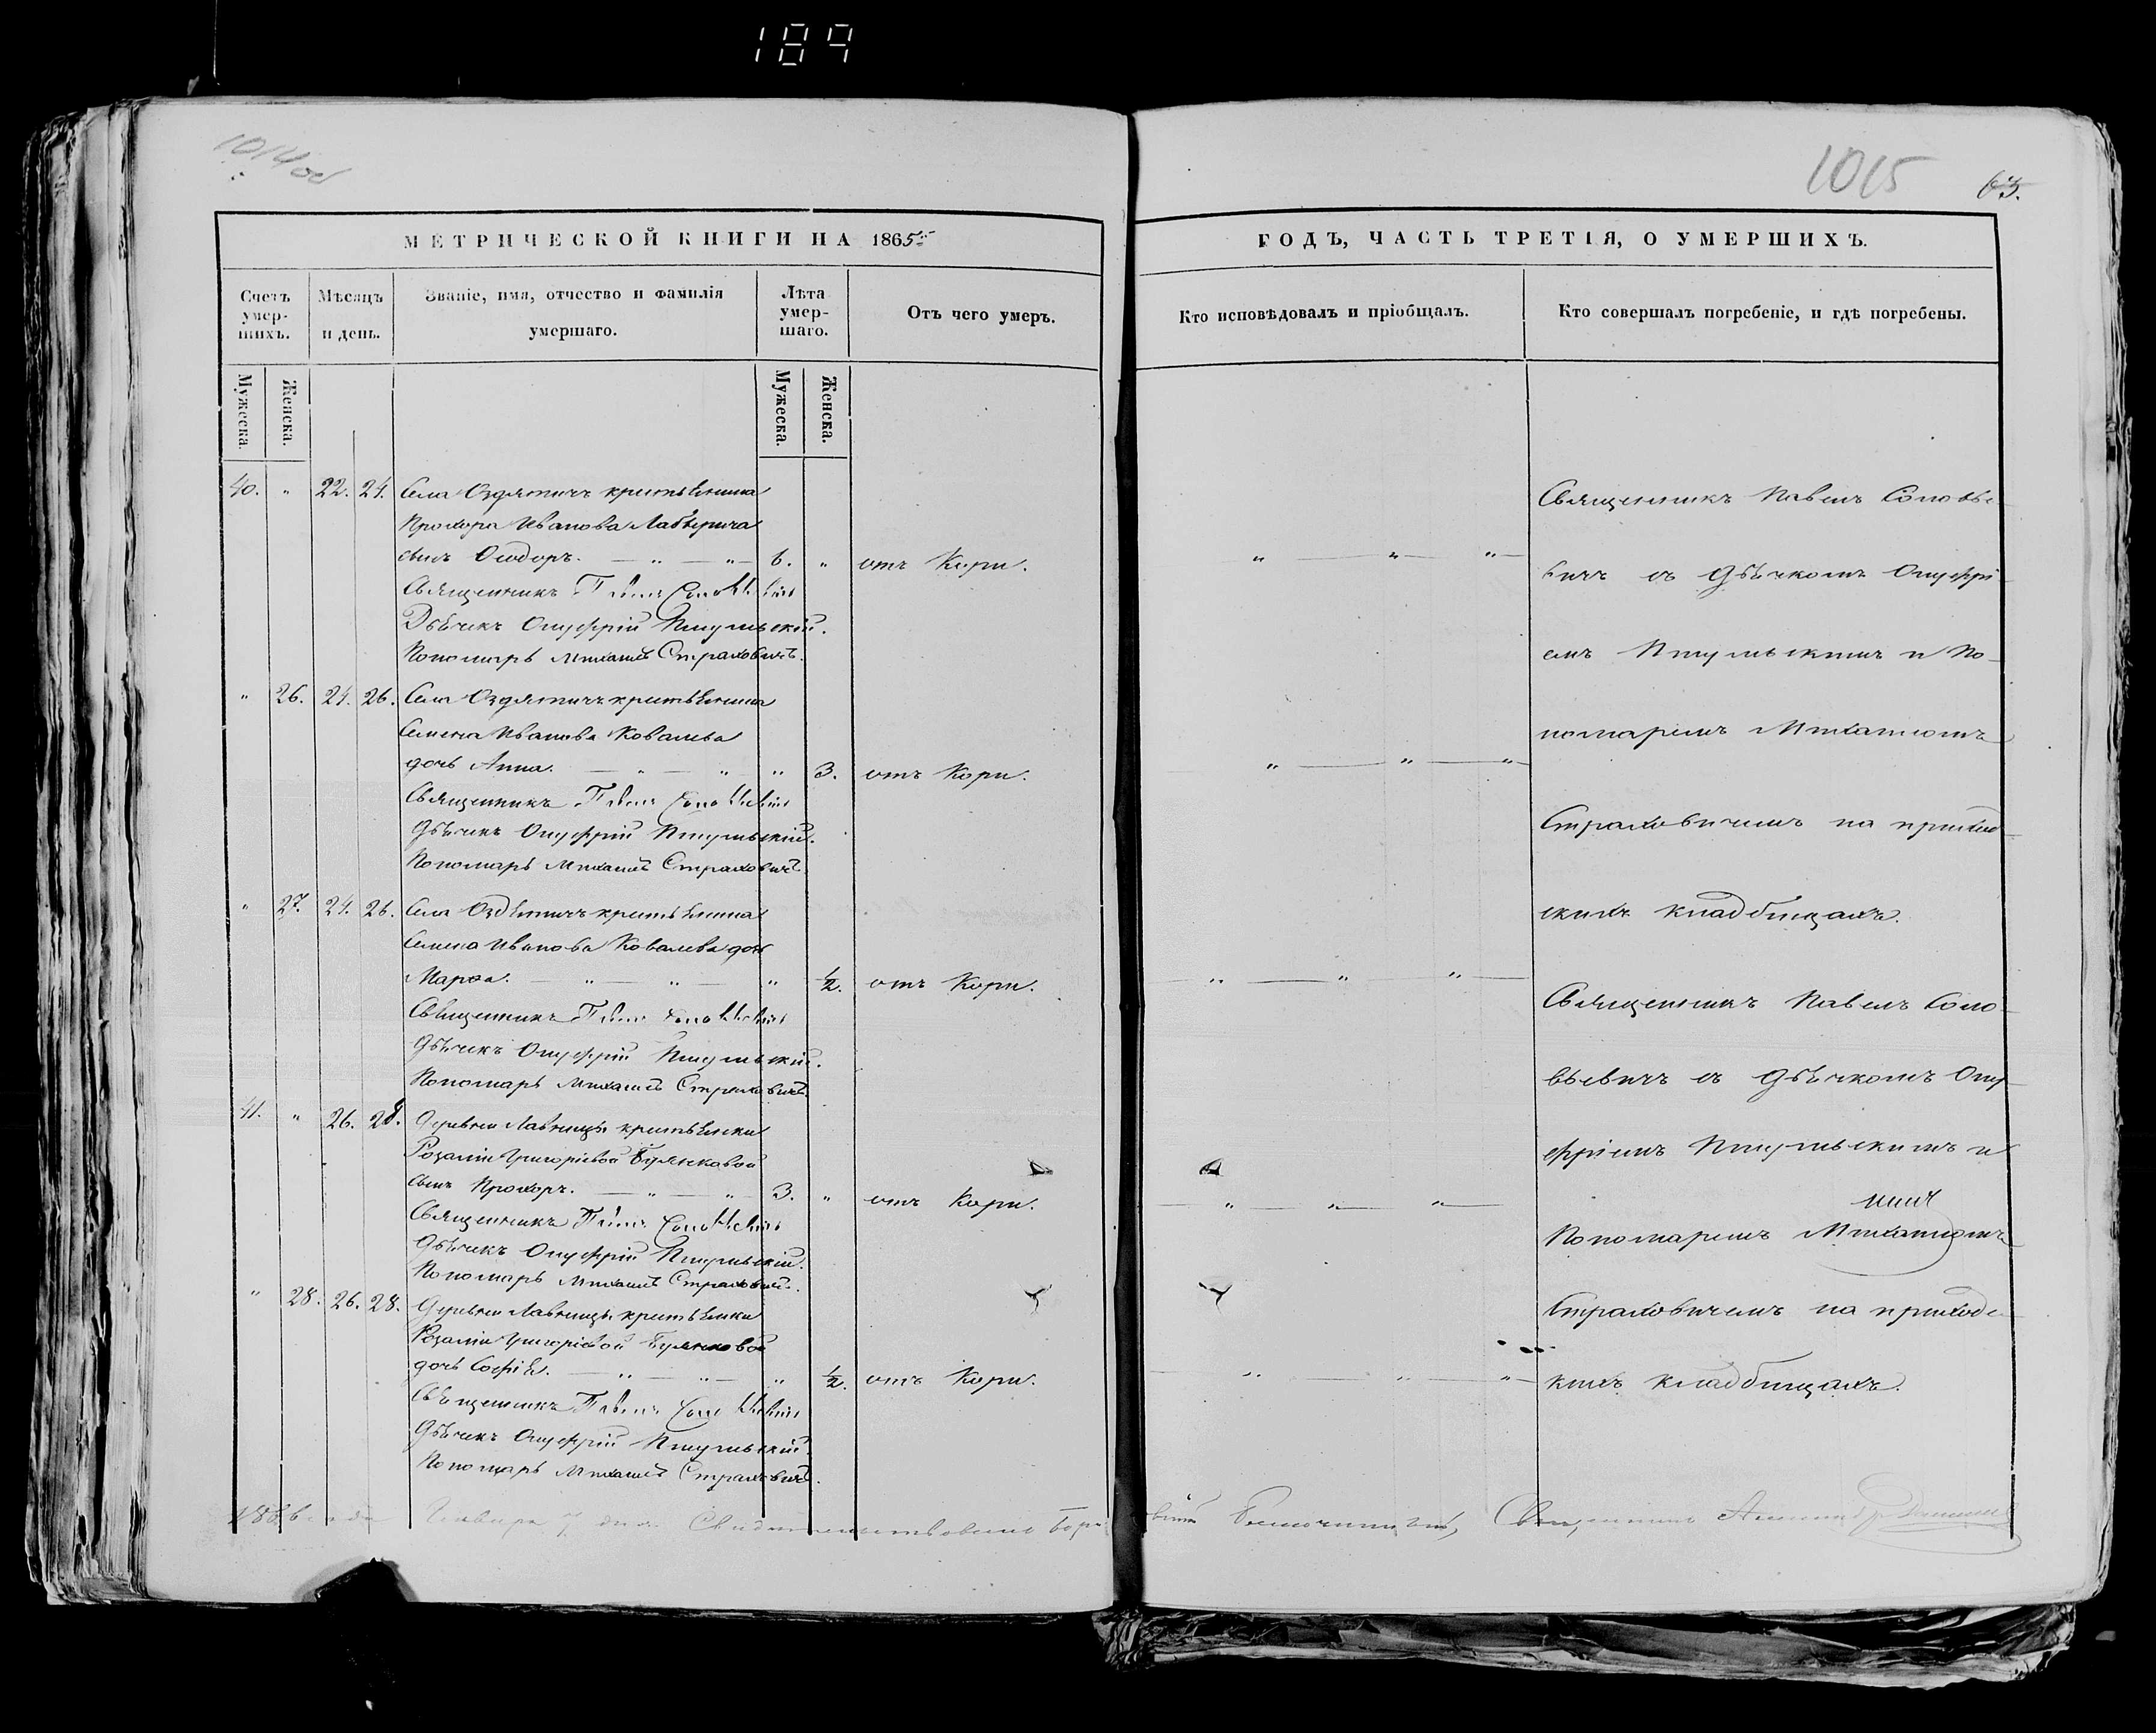 189
1014 об
1015
63.
МЕТРИЧЕСКОЙ КНИГИ НА 1865
ГОДЪ, ЧАСТЬ ТРЕТІЯ, О УМЕРШИХЪ.
Счетъ умер-шихъ.
Мѣсяцъ и день.
Званіе, имя, отчество и фамилія умершаго.
Лѣта умер-шаго.
Отъ чего умеръ.
Кто исповѣдовалъ и пріобщалъ.
Кто совершалъ погребеніе, и гдѣ погребены.
Мужеска.
Женска.
Мужеска.
Женска.
40. " 22. 24. Села Оздятичъ крестьянина
Прохора Иванова
сынъ Ѳеодоръ. — " — " — 6. " отъ Кори. " — " — " —
Священникъ Павелъ Соловьевичъ
Дьячекъ Онуфрій Пшульскій.
Пономарь Михаилъ Страховичъ.
" 26. 24. 26. Села Оздятичъ крестьянина
Семена Иванова Ковалева
дочь Анна. — " — " " 3. отъ Кори. " — " — " —
Священникъ Павелъ Соловьевичъ
Дьячекъ Онуфрій Пшульскій.
Пономарь Михаилъ Страховичъ.
" 27. 24. 26. Села Оздятичъ крестьянина
Семена Иванова Ковалева дочь
Марѳа. — " — " — " ½. отъ Кори. " — " — " —
Священникъ Павелъ Соловьевичъ
Дьячекъ Онуфрій Пшульскій.
Пономарь Михаилъ Страховичъ.
41. " 26. 28. Деревни Лавницы крестьянки
Розаліи Григоріевой
сынъ Прохоръ. — " — " — 3. " отъ Кори. — " — " — " —
Священникъ Павелъ Соловьевичъ
Дьячекъ Онуфрій Пшульскій.
Пономарь Михаилъ Страховичъ.
" 28. 26. 28. Деревни Лавницы крестьянки
Розаліи Григоріевой
дочь Софія. — " — " — " ½. отъ Кори. — " — " — " —
Священникъ Павелъ Соловьевичъ
Дьячекъ Онуфрій Пшульскій.
Пономарь Михаилъ Страховичъ.
Священникъ Павелъ Соловье-
вичъ съ дьячкомъ Онуфрі-
емъ Пшульскимъ и По-
номаремъ Михаиломъ
Страховичемъ на приход-
скихъ кладбищахъ.
Священникъ Павелъ Соло-
вьевичъ съ дьячкомъ Ону-
фріемъ Пшульскимъ и
Пономаремъ Михаиломъ
Страховичемъ на приходс-
кихъ кладбищахъ.
1866 года Января 7 дня Свидетельствовалъ Благочинный, Священникъ